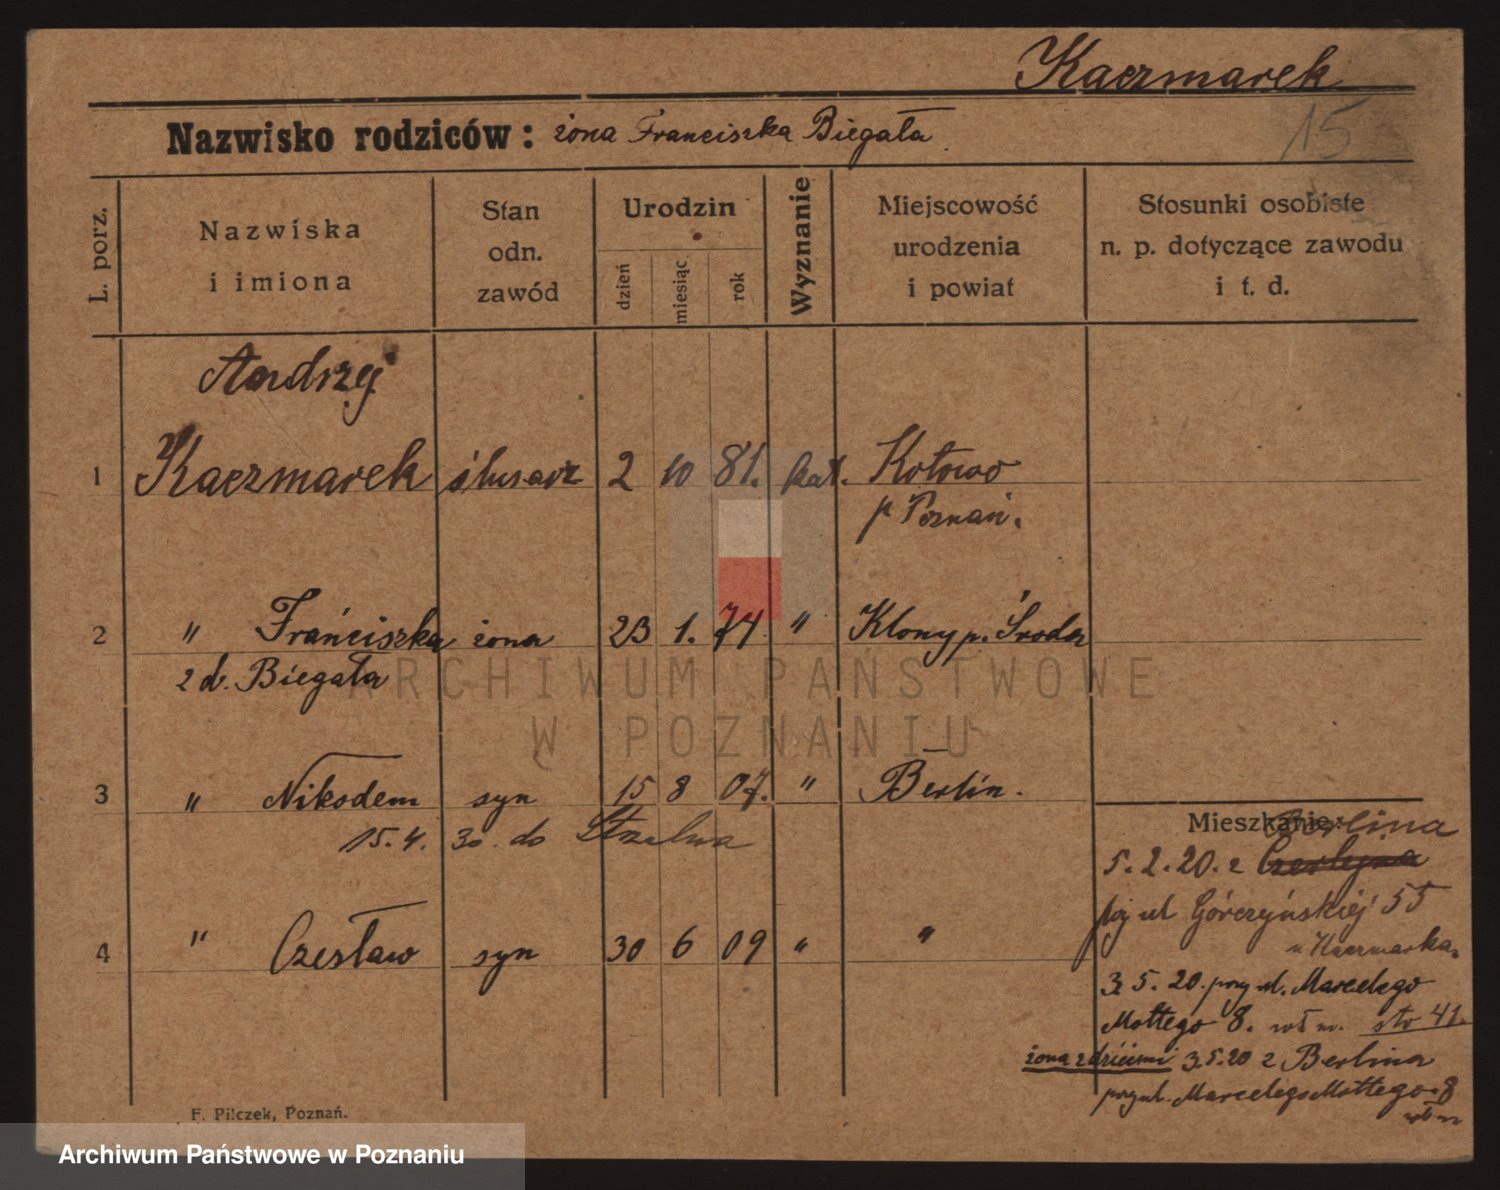 Kaczmarek
15
Nazwisko rodziców: żona Franciszka Biegała
L. porz.
Nazwiska
i imiona
Stan
odn.
zawód
Urodzin
dzień
miesiąc
rok
Wyznanie
Miejscowość
urodzenia
i powiat
Stosunki osobiste
n. p. dotyczące zawodu
i t. d.
Andrzej
1 Kaczmarek ślusarz 2 10 81. kat. Kotowo
p Poznań.
2 " Franciszka żona 23 1. 74 " Klony p. Środa
z d. Biegała
3 " Nikodem syn 15 8 07. " Berlin.
15.4. 30. do Strzelna
4 " Czesław syn 30 6 09 " "
Mieszkanie: Berlina
5.2.20. z Czerlejna
przy ul Górczyńskiej 55
u Kaczmarka.
3.5.20. przy ul. Marcelego
Mottego 8. wł m. sto 41.
żona z dziećmi 3.5.20 z Berlina
przy ul. Marcelego Mottego 8
F. Pilczek, Poznań.
ARCHIWUM PAŃSTWOWE
W POZNANIU
Archiwum Państwowe w Poznaniu